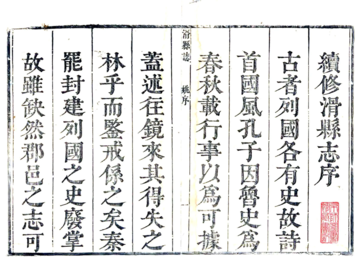 續修滑縣志序
古者列國各有史故詩
首國風孔子因魯史為
春秋載行事以為可據
滑縣誌
蓋述往鏡來其得失之
林乎而鑒戒係之矣秦
罷封建列國之史廢掌
故雖缺然郡邑之志可